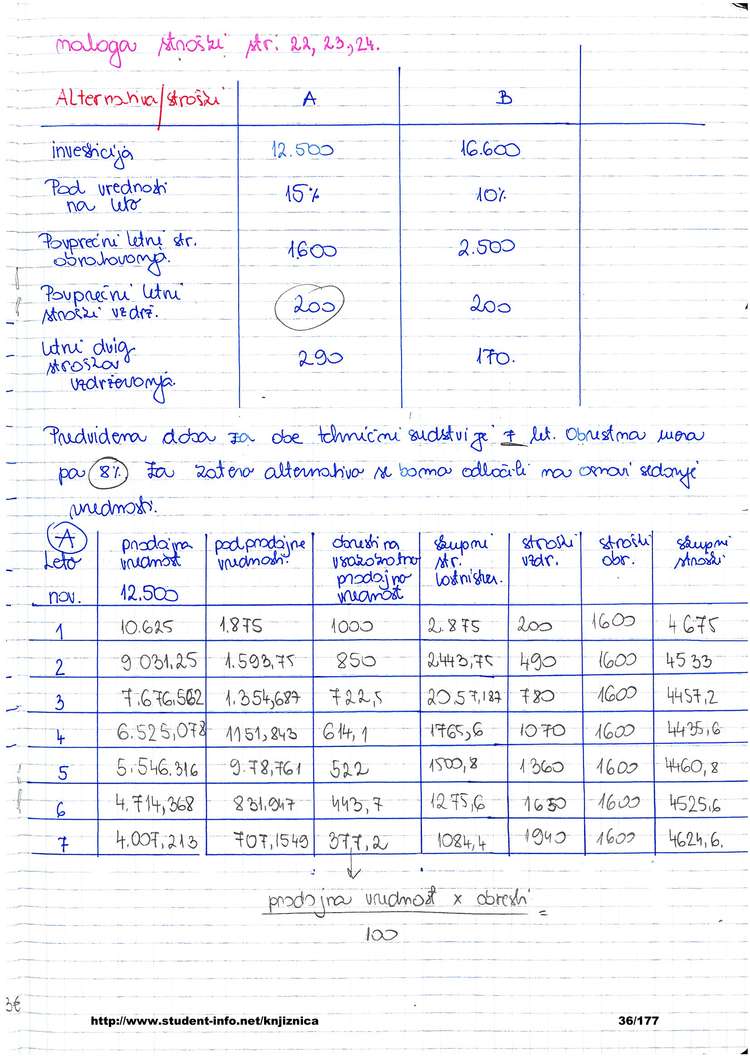 naloga stroški str: 22, 23, 24.
Alternativa/stroški A B
investicija 12.500 16.600
Pad vrednosti na leto 15% 10%
Povprečni letni str. obratovanja. 1600 2.500
Povprečni letni stroški vzdrž. 200 200
Letni dvig stroškov vzdrževanja. 290 170.
Predvidena doba za obe tehnični sredstvi je 7 let. Obrestna mera
pa 8% za katero alternativo se bomo odločili na osnovi sedanje
vrednosti.
A
Leto prodajna vrednost pad prodajne vrednosti. obresti na vsakokratno prodajno vrednost skupni str. lastništva. stroški vzdr. stroški obr. skupni stroški
nov. 12.500
1 10.625 1.875 1000 2.875 200 1600 4675
2 9031,25 1.593,75 850 2443,75 490 1600 4533
3 7.676,562 1.354,687 722,5 2057,187 780 1600 4457,2
4 6.525,078 1151,843 614,1 1765,6 1070 1600 4435,6
5 5.546.316 9.78,761 522 1500,8 1360 1600 4460,8
6 4.714,368 831.947 443,7 1275,6 1650 1600 4525,6
7 4.007,213 707,1549 377,2 1084,4 1940 1600 4624,6.
prodajna vrednost x obresti =
100
3€
http://www.student-info.net/knjiznica 36/177